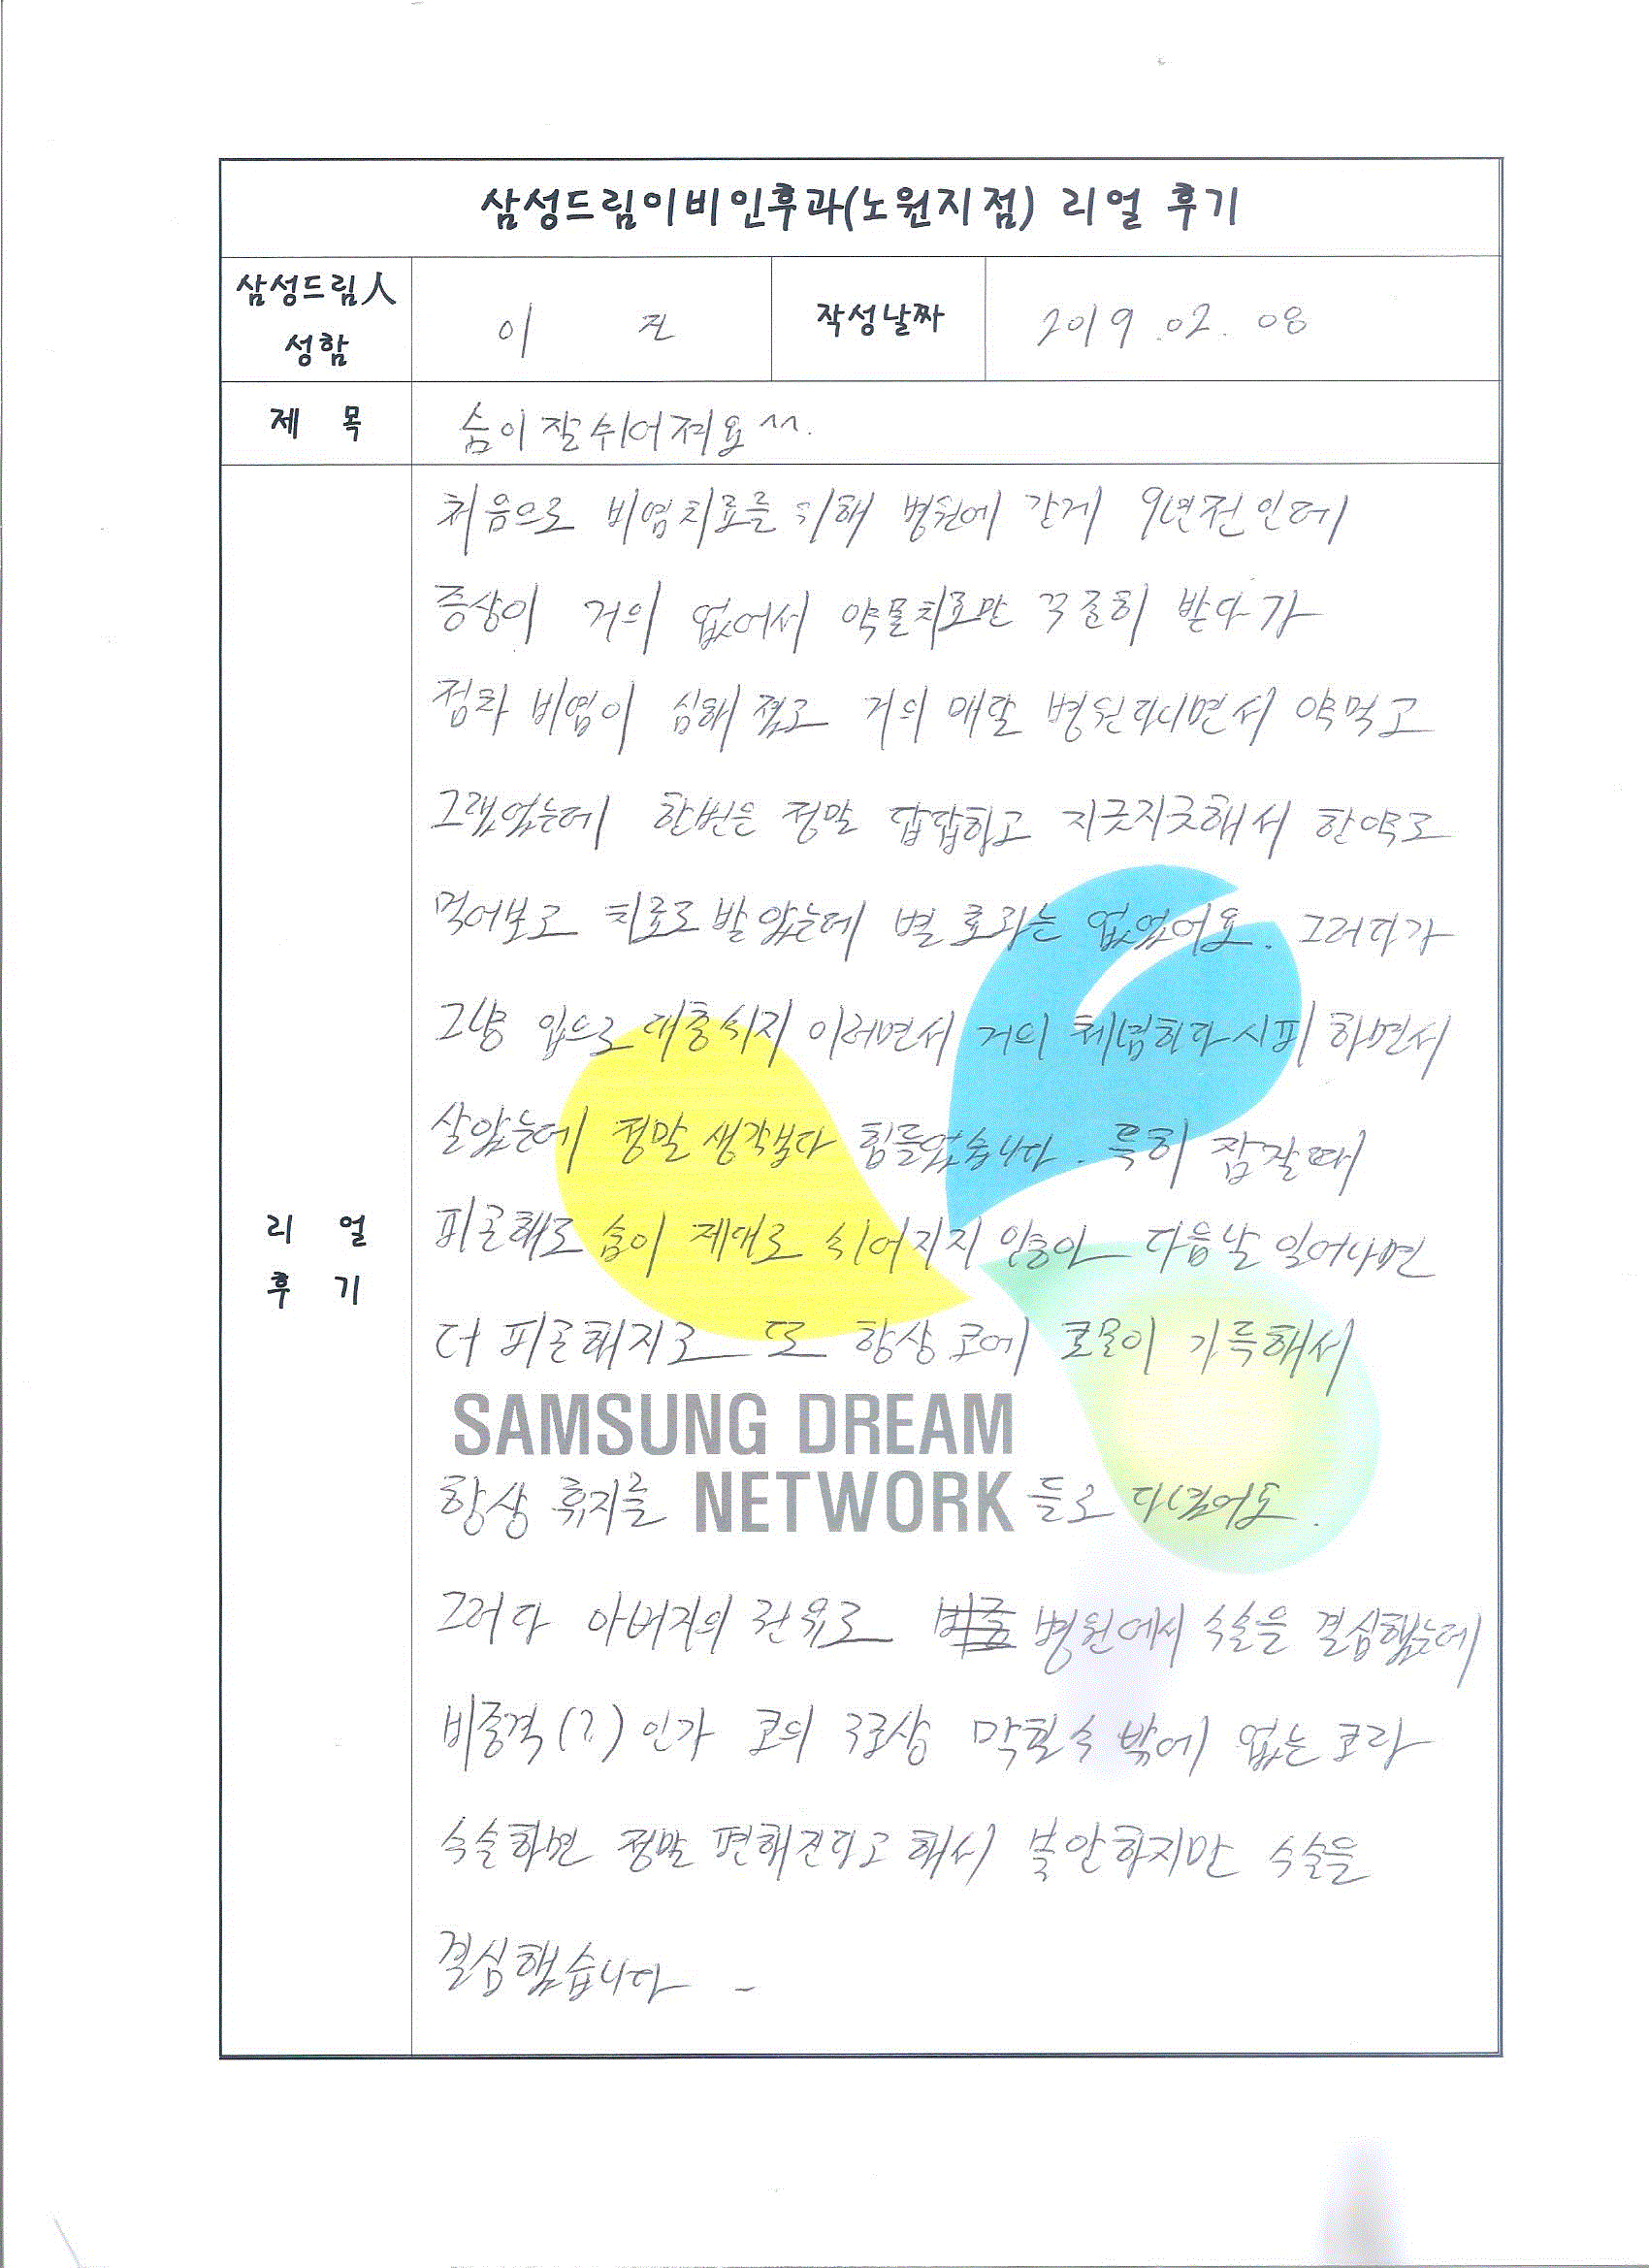 삼성드림이비인후과(노원지점) 리얼 후기
삼성드림人 성함
이 진
작성날짜
2019.02.08
제 목
숨이 잘 쉬어져요^^.
리 얼 후 기
처음으로 비염치료를 위해 병원에 간게 9년전인데
증상이 거의 없어서 약물치료만 꾸준히 받다가
점차 비염이 심해졌고 거의 매달 병원다니면서 약먹고
그랬었는데 한번은 정말 답답하고 지긋지긋해서 한약도
먹어보고 치료도 받았는데 별 효과는 없었어요. 그러다가
그냥 입으로 대충쉬지 이러면서 거의 체념하다시피 하면서
살았는데 정말 생각보다 힘들었습니다. 특히 잠잘때
피곤해도 숨이 제대로 쉬어지지 않아 다음날 일어나면
더 피곤해지고 또 항상 코에 콧물이 가득해서
SAMSUNG DREAM
항상 휴지를 NETWORK 들고 다녔어요.
그러다 아버지의 권유로 병원에서 수술을 결심했는데
비중격(?)인가 코의 구조상 막힐수 밖에 없는 코라
수술하면 정말 편해진다고 해서 불안하지만 수술을
결심했습니다 -